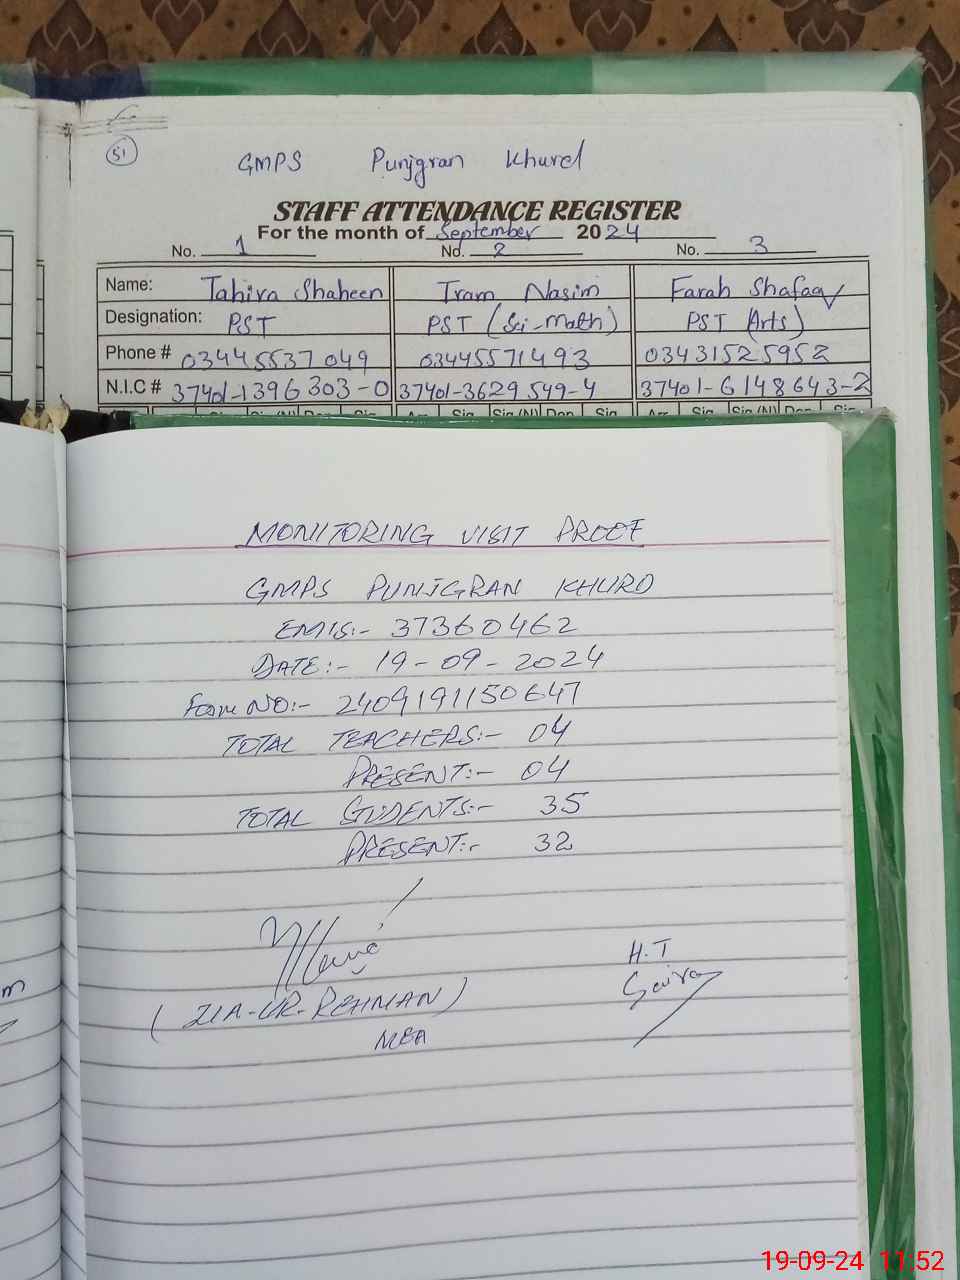 51
GMPS Punjgran Khurd
STAFF ATTENDANCE REGISTER
For the month of September 2024
No. 1 No. 2 No. 3
Name: Tahira Shaheen Iram Nasim Farah Shafaq
Designation: PST PST (Sci-Math) PST (Arts)
Phone # 03445537049 03445571493 03431525952
N.I.C # 37401-1396303-0 37401-3629549-4 37401-6148643-2
MONITORING VISIT PROOF
GMPS PUNJGRAN KHURD
EMIS:- 37360462
DATE:- 19-09-2024
Form NO:- 2409191150647
TOTAL TEACHERS:- 04
PRESENT:- 04
TOTAL STUDENTS:- 35
PRESENT:- 32
H.T
(ZIA-UR-REHMAN)
MEA
19-09-24 11:52